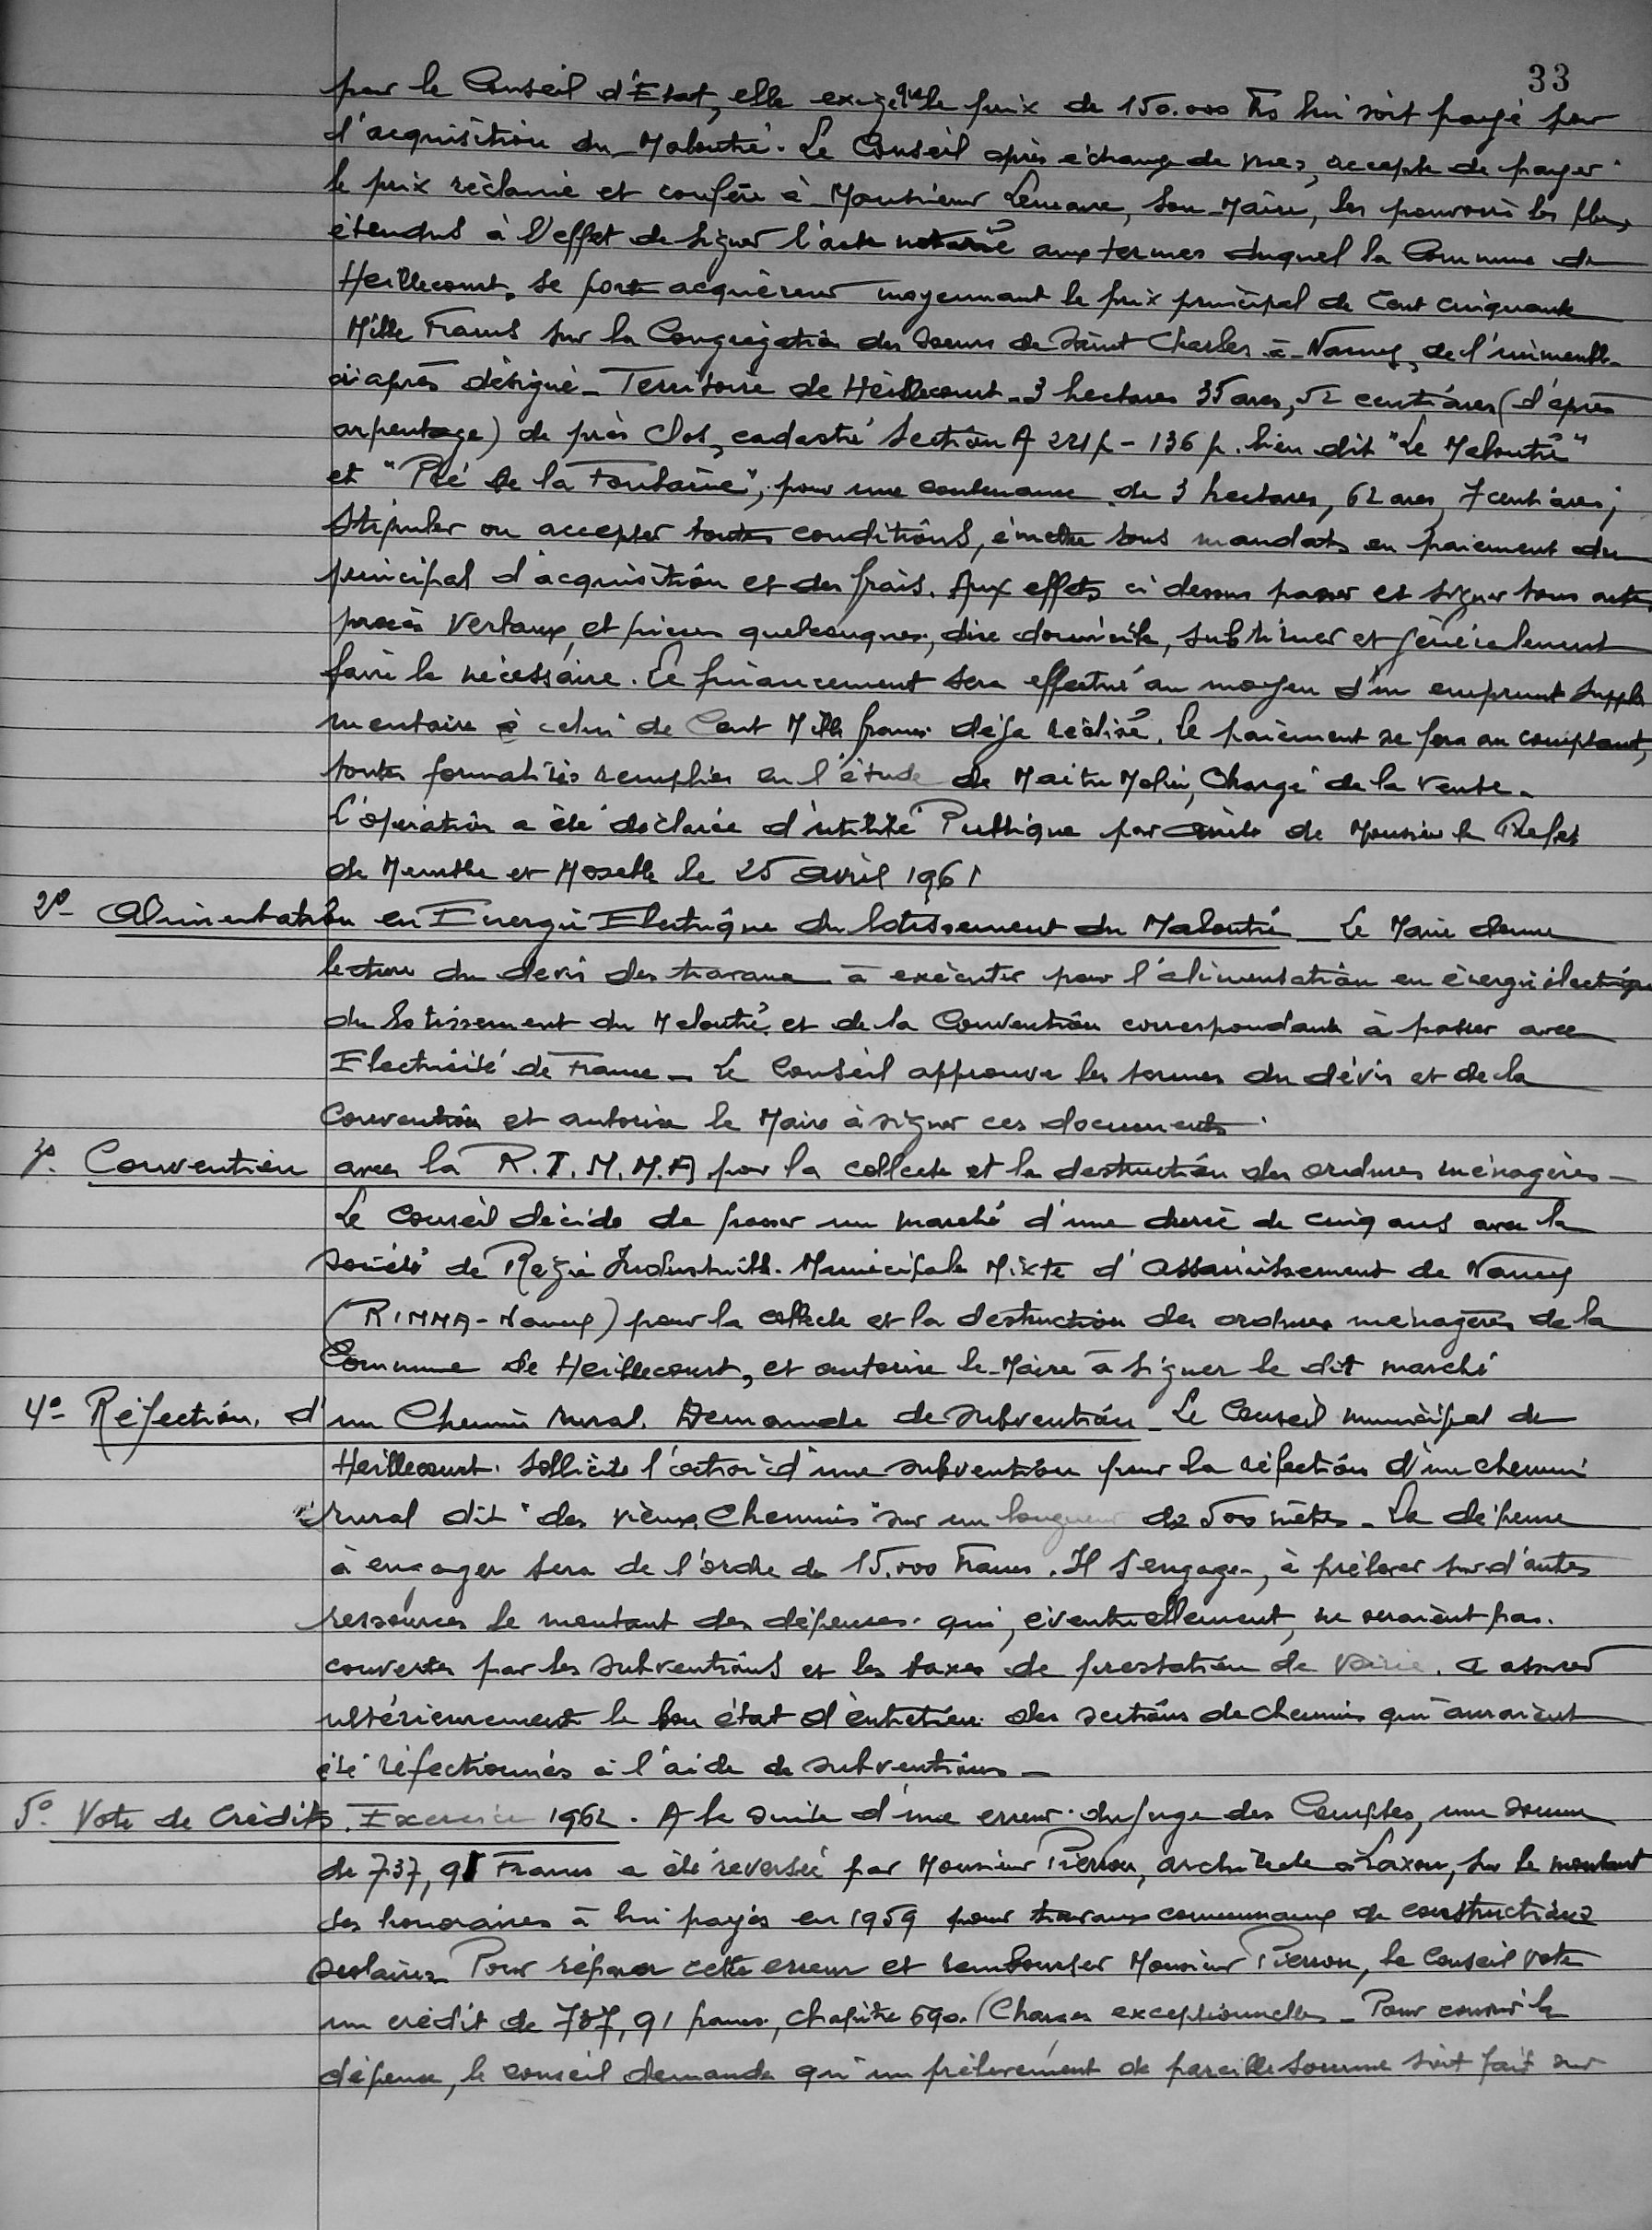 33
par le Conseil d'Etat, elle exige que le prix de 150.000 Frs lui soit payé pour
l'acquisition du Maloutré. Le Conseil après échange de vues, accepte de payer
le prix réclamé et confère à Monsieur Lemaire, son Maire, les pouvoirs les plus
étendus à l'effet de signer l'acte notarié aux termes duquel la Commune de
Heillecourt, se porte acquéreur moyennant le prix principal de Cent cinquante
Mille Francs sur la Congrégation des Soeurs de Saint Charles à Nancy, de l'immeuble
ci après désigné - Territoire de Heillecourt - 3 hectares 35 ares, 52 centiares (d'après
arpentage) de près clos, cadastré Section A 221p - 136 p. lieu dit "Le Maloutré"
et "Pré de la Fontaine", pour une contenance de 3 hectares, 62 ares, 7 centiares;
Stipuler ou accepter toutes conditions, émettre tous mandats en paiement du
principal d'acquisition et des frais. Aux effets ci dessus passer et signer tous actes
procès verbaux, et pièces quelconques, élire domicile, substituer et généralement
faire le nécessaire. Le financement sera effectué au moyen d'un emprunt supplé
mentaire à celui de Cent Mille francs déjà réalisé. Le paiement se fera au comptant,
toutes formalités remplies en l'étude de Maitre Molin, Chargé de la vente.
L'opération a été déclarée d'utilité Publique par arrêté de Monsieur le Préfet
de Meurthe et Moselle le 25 avril 1961
2° - Alimentation en Energie Electrique du lotissement du Maloutré - Le Maire donne
lecture du devis des travaux à exécuter pour l'alimentation en énergie électrique
du lotissement du Maloutré et de la Convention correspondante à passer avec
Electricité de France - Le Conseil approuve les termes du dévis et de la
Convention et autorise le Maire à signer ces documents.
3°. Convention avec la R.I.M.M.A pour la collecte et la destruction des ordures ménagères -
Le Conseil décide de passer un marché d'une durée de cinq ans avec la
Société de Régie Industrielle Municipale Mixte d'Assainissement de Nancy
(RIMMA - Nancy) pour la collecte et la destruction des ordures ménagères de la
Commune de Heillecourt, et autorise le Maire à signer le dit marché
4° - Réfection, d'un Chemin rural. Demande de subvention - Le Conseil municipal de
Heillecourt. Sollicite l'octroi d'une subvention pour la réfection d'un chemin
rural dit "des vieux Chemins" sur un longueur de 500 mètres - La dépense
à engager sera de l'ordre de 15.000 Francs. Il s'engage, à prélever sur d'autres
ressources le montant des dépenses qui, éventuellement, ne seraient pas.
couvertes par les subventions et les taxes de prestation de voirie. à assurer
ultérieurement le bon état d'entretien des sections de chemins qui auraient
été réfectionnés à l'aide de subventions -
5° - Vote de Crédits. Exercice 1962. A la suite d'une erreur du Juge des Comptes, une somme
de 737,91 Francs a été reversée par Monsieur Pierron, architecte à Laxou, sur le montant
des honoraires à lui payés en 1959 pour travaux communaux de constructions
scolaires. Pour réparer cette erreur et rembourser Monsieur Pierron, le Conseil vote
un crédit de 737,91 francs, chapitre 690. (Charges exceptionnelles - Pour couvrir la
dépense, le conseil demande qu'un prélèvement de pareille somme soit fait sur